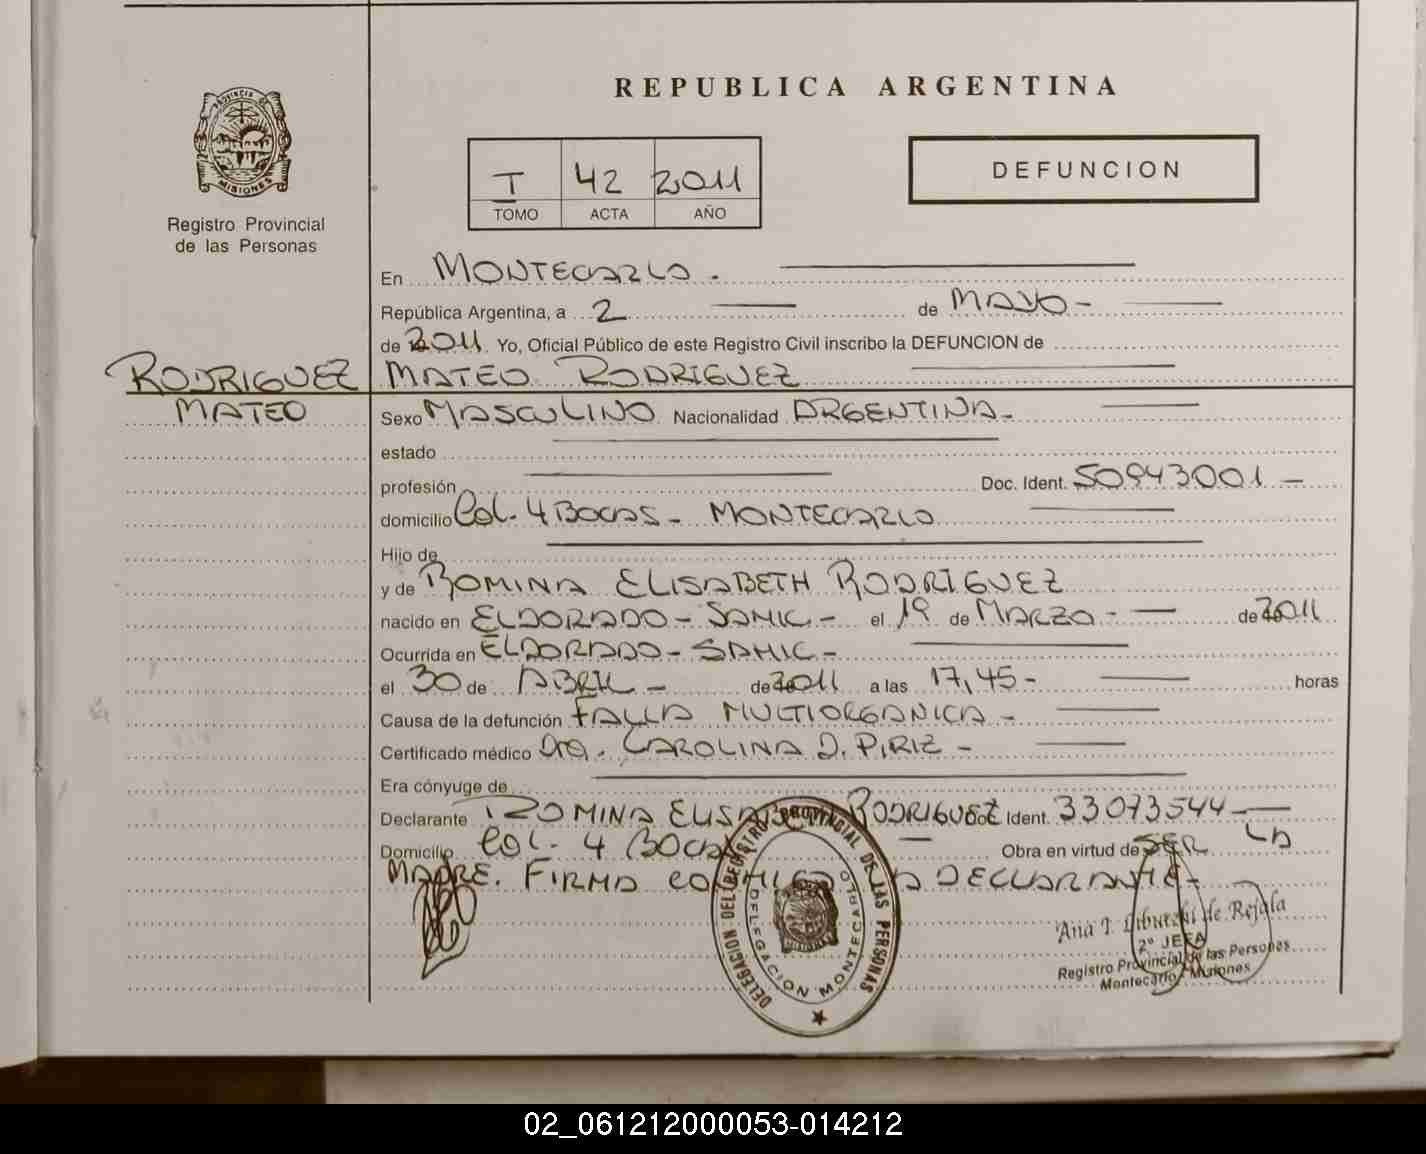 PROVINCIA DE
MISIONES
Registro Provincial
de las Personas
REPUBLICA ARGENTINA
T 42 2011
TOMO ACTA AÑO
DEFUNCION
En MONTECARLO.
República Argentina, a 2 de MAYO-
de 2011. Yo, Oficial Público de este Registro Civil inscribo la DEFUNCION de
RODRIGUEZ MATEO RODRIGUEZ
MATEO
Sexo MASCULINO Nacionalidad ARGENTINA-
estado
profesión Doc. Ident. 50943001-
domicilio Col. 4 BOCAS- MONTECARLO
Hijo de
y de ROMINA ELISABETH RODRIGUEZ
nacido en ELDORADO-SAMIC- el 19 de MARZO- de 2011
Ocurrida en ELDORADO-SAMIC-
el 30 de ABRIL- de 2011 a las 17,45- horas
Causa de la defunción FALLA MULTIORGANICA-
Certificado médico Dra. CAROLINA D. PIRIZ-
Era cónyuge de
Declarante ROMINA ELISABETH RODRIGUEZ Doc Ident. 33073544-
Domicilio COL. 4 BOCAS Obra en virtud de SER LA
MADRE. FIRMA CONMIGO LA DECLARANTE-
DELEGACION DEL REGISTRO PROVINCIAL DE LAS PERSONAS
DELEGACION MONTECARLO
Ana T. de Rejala
2º JEFA
Registro Provincial de las Personas
Montecarlo - Misiones
02_061212000053-014212